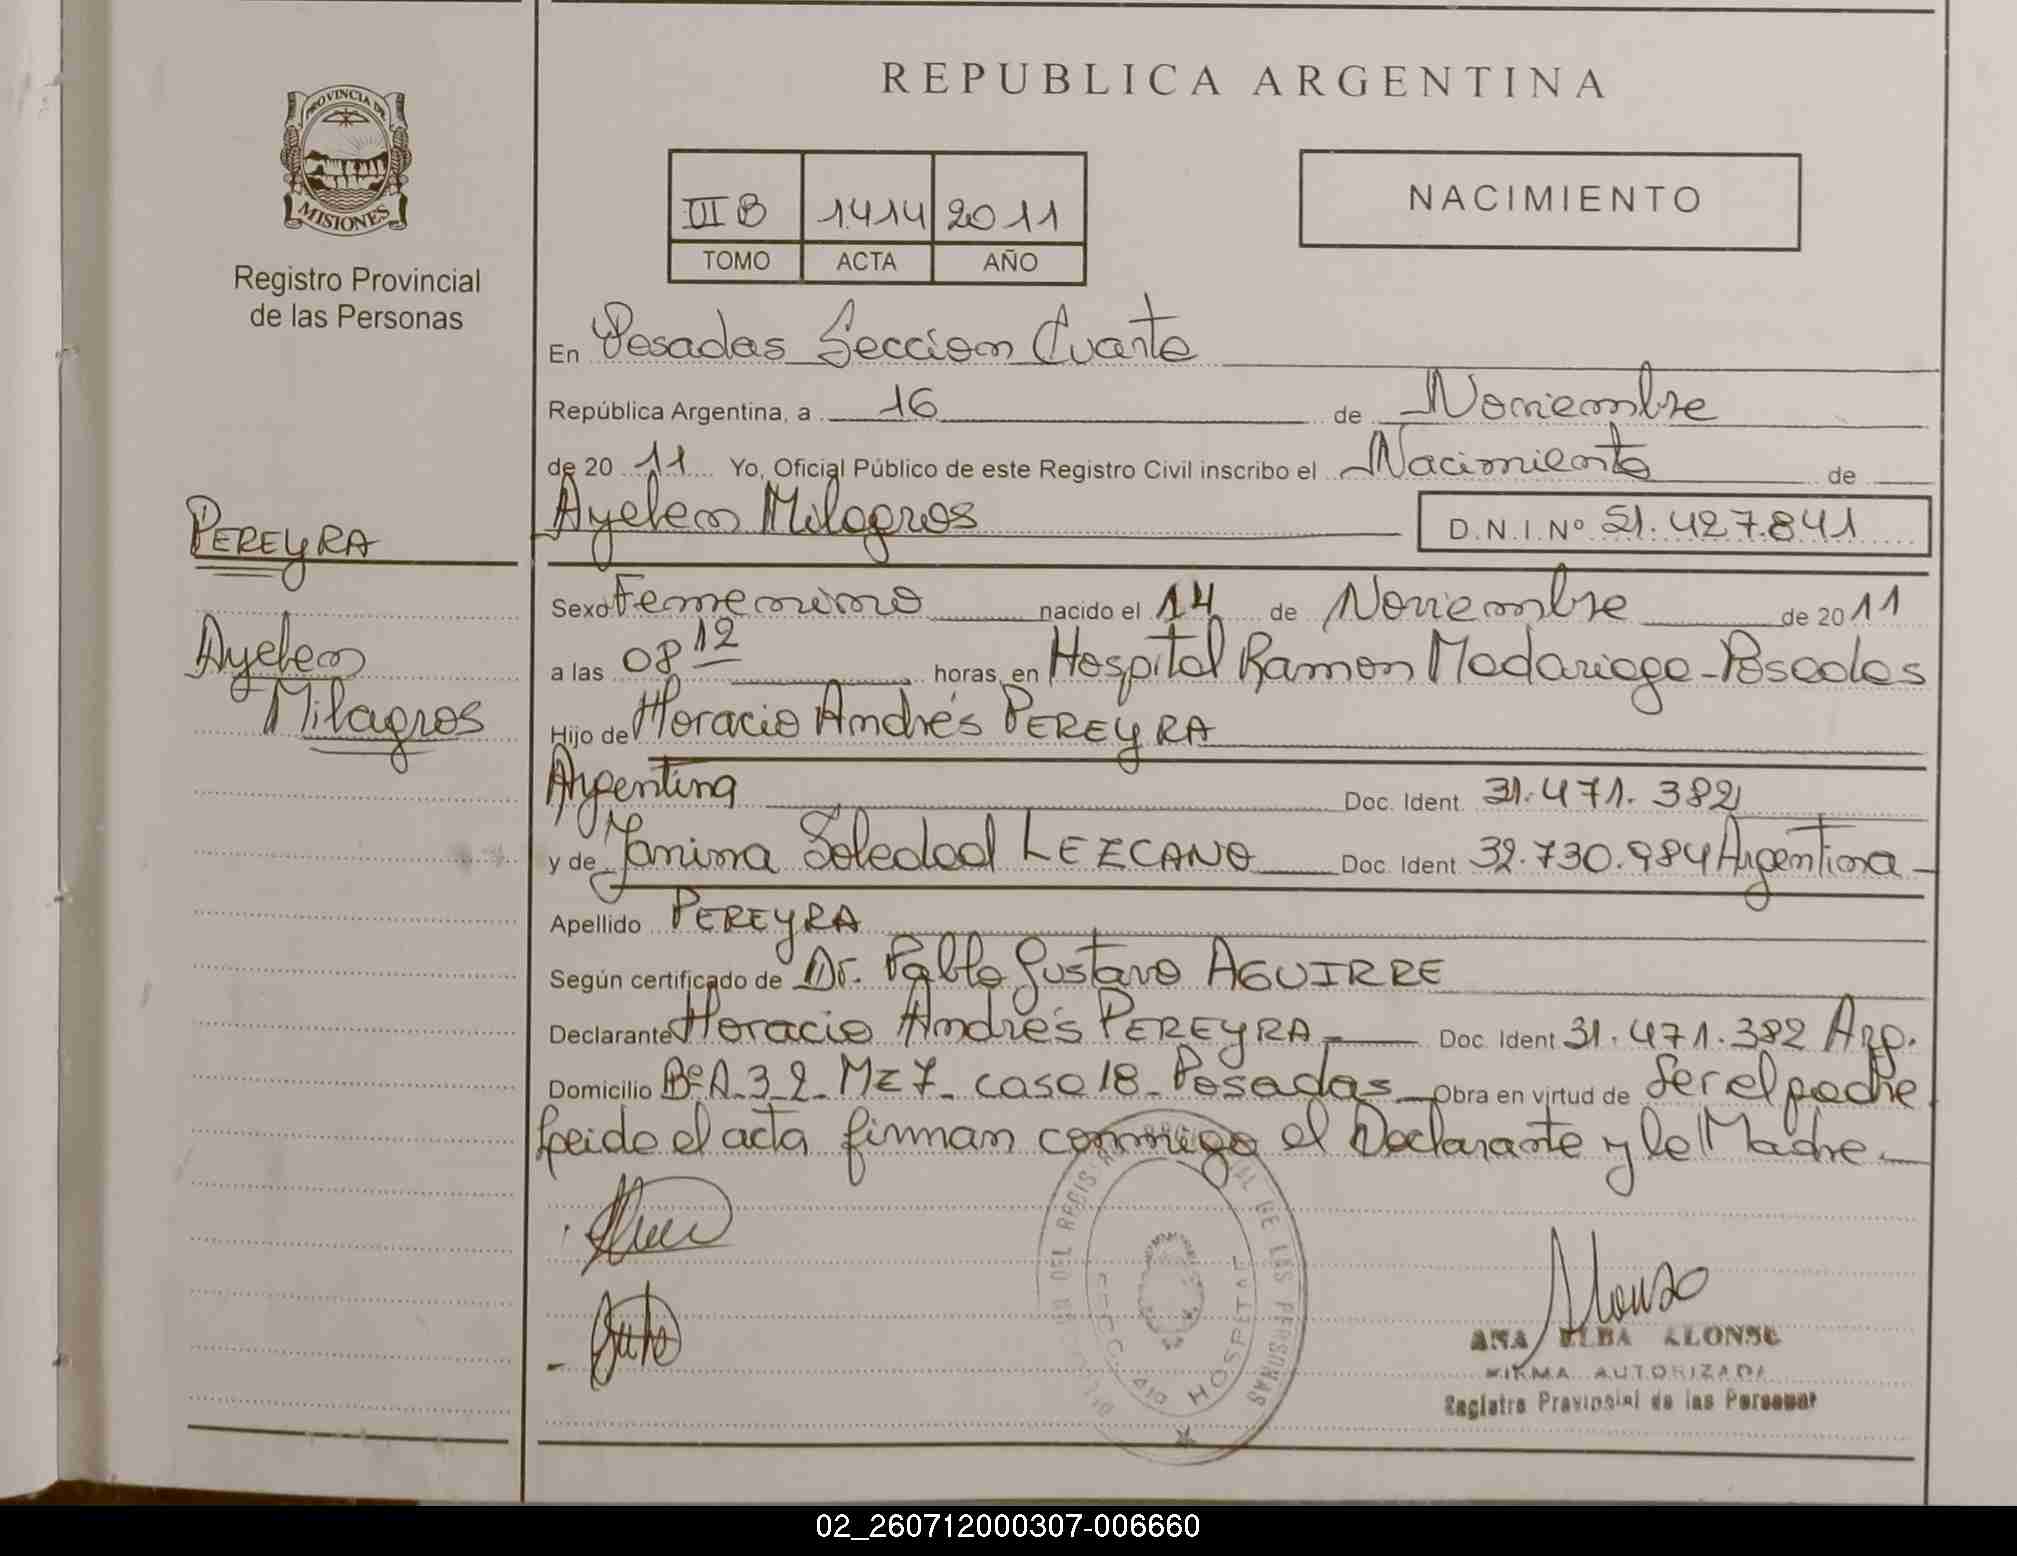 REPUBLICA ARGENTINA
PROVINCIA DE
MISIONES
Registro Provincial
de las Personas
III B 1414 2011
TOMO ACTA AÑO
NACIMIENTO
En Posadas Seccion Cuarta
República Argentina, a 16 de Noviembre
de 20 11 Yo, Oficial Público de este Registro Civil inscribo el Nacimiento de
Ayelen Milagros D.N.I. Nº 51.427.841
PEREYRA
Ayelen
Milagros
Sexo Femenino nacido el 14 de Noviembre de 20 11
a las 08 12 horas, en Hospital Ramon Madariaga - Posadas
Hijo de Horacio Andrés PEREYRA
Argentina Doc. Ident. 31.471.382
y de Janina Soledad LEZCANO Doc. Ident 32.730.984 Argentina
Apellido PEREYRA
Según certificado de Dr. Pablo Gustavo AGUIRRE
Declarante Horacio Andrés PEREYRA Doc. Ident 31.471.382 Arg.
Domicilio Bº A-3-2- Mz 7- casa 18- Posadas Obra en virtud de Ser el padre
Leido el acta firman conmigo el Declarante y la Madre.
DEL REGIS DE LAS PERSONAS
HOSPITAL
Alonso
ANA ELBA ALONSO
FIRMA AUTORIZADA
Registro Provincial de las Personas
02_260712000307-006660